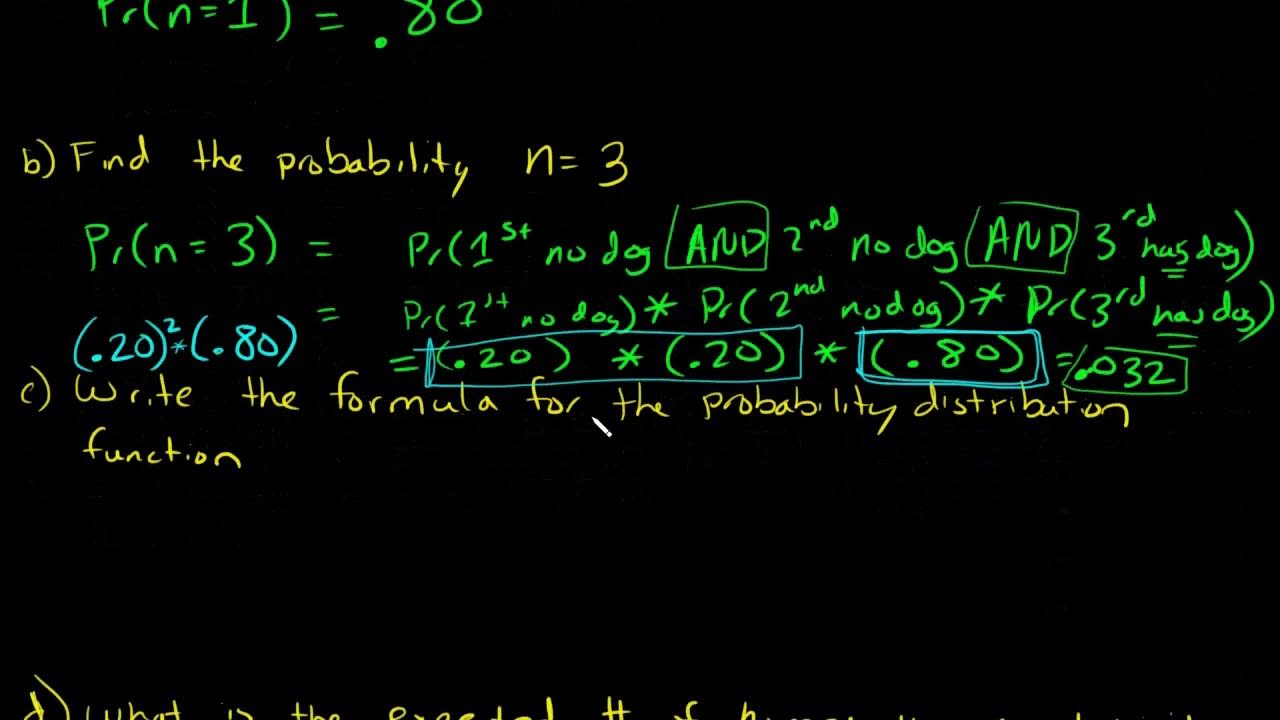 Pr(n=1) = .80
b) Find the probability n= 3
Pr(n = 3) = Pr(1st no dog AND 2nd no dog AND 3rd has dog)
= Pr(1st no dog) * Pr(2nd no dog) * Pr(3rd has dog)
(.20)² * (.80) = (.20) * (.20) * (.80) = .032
c) Write the formula for the probability distribution
function
d) What is the expected # of